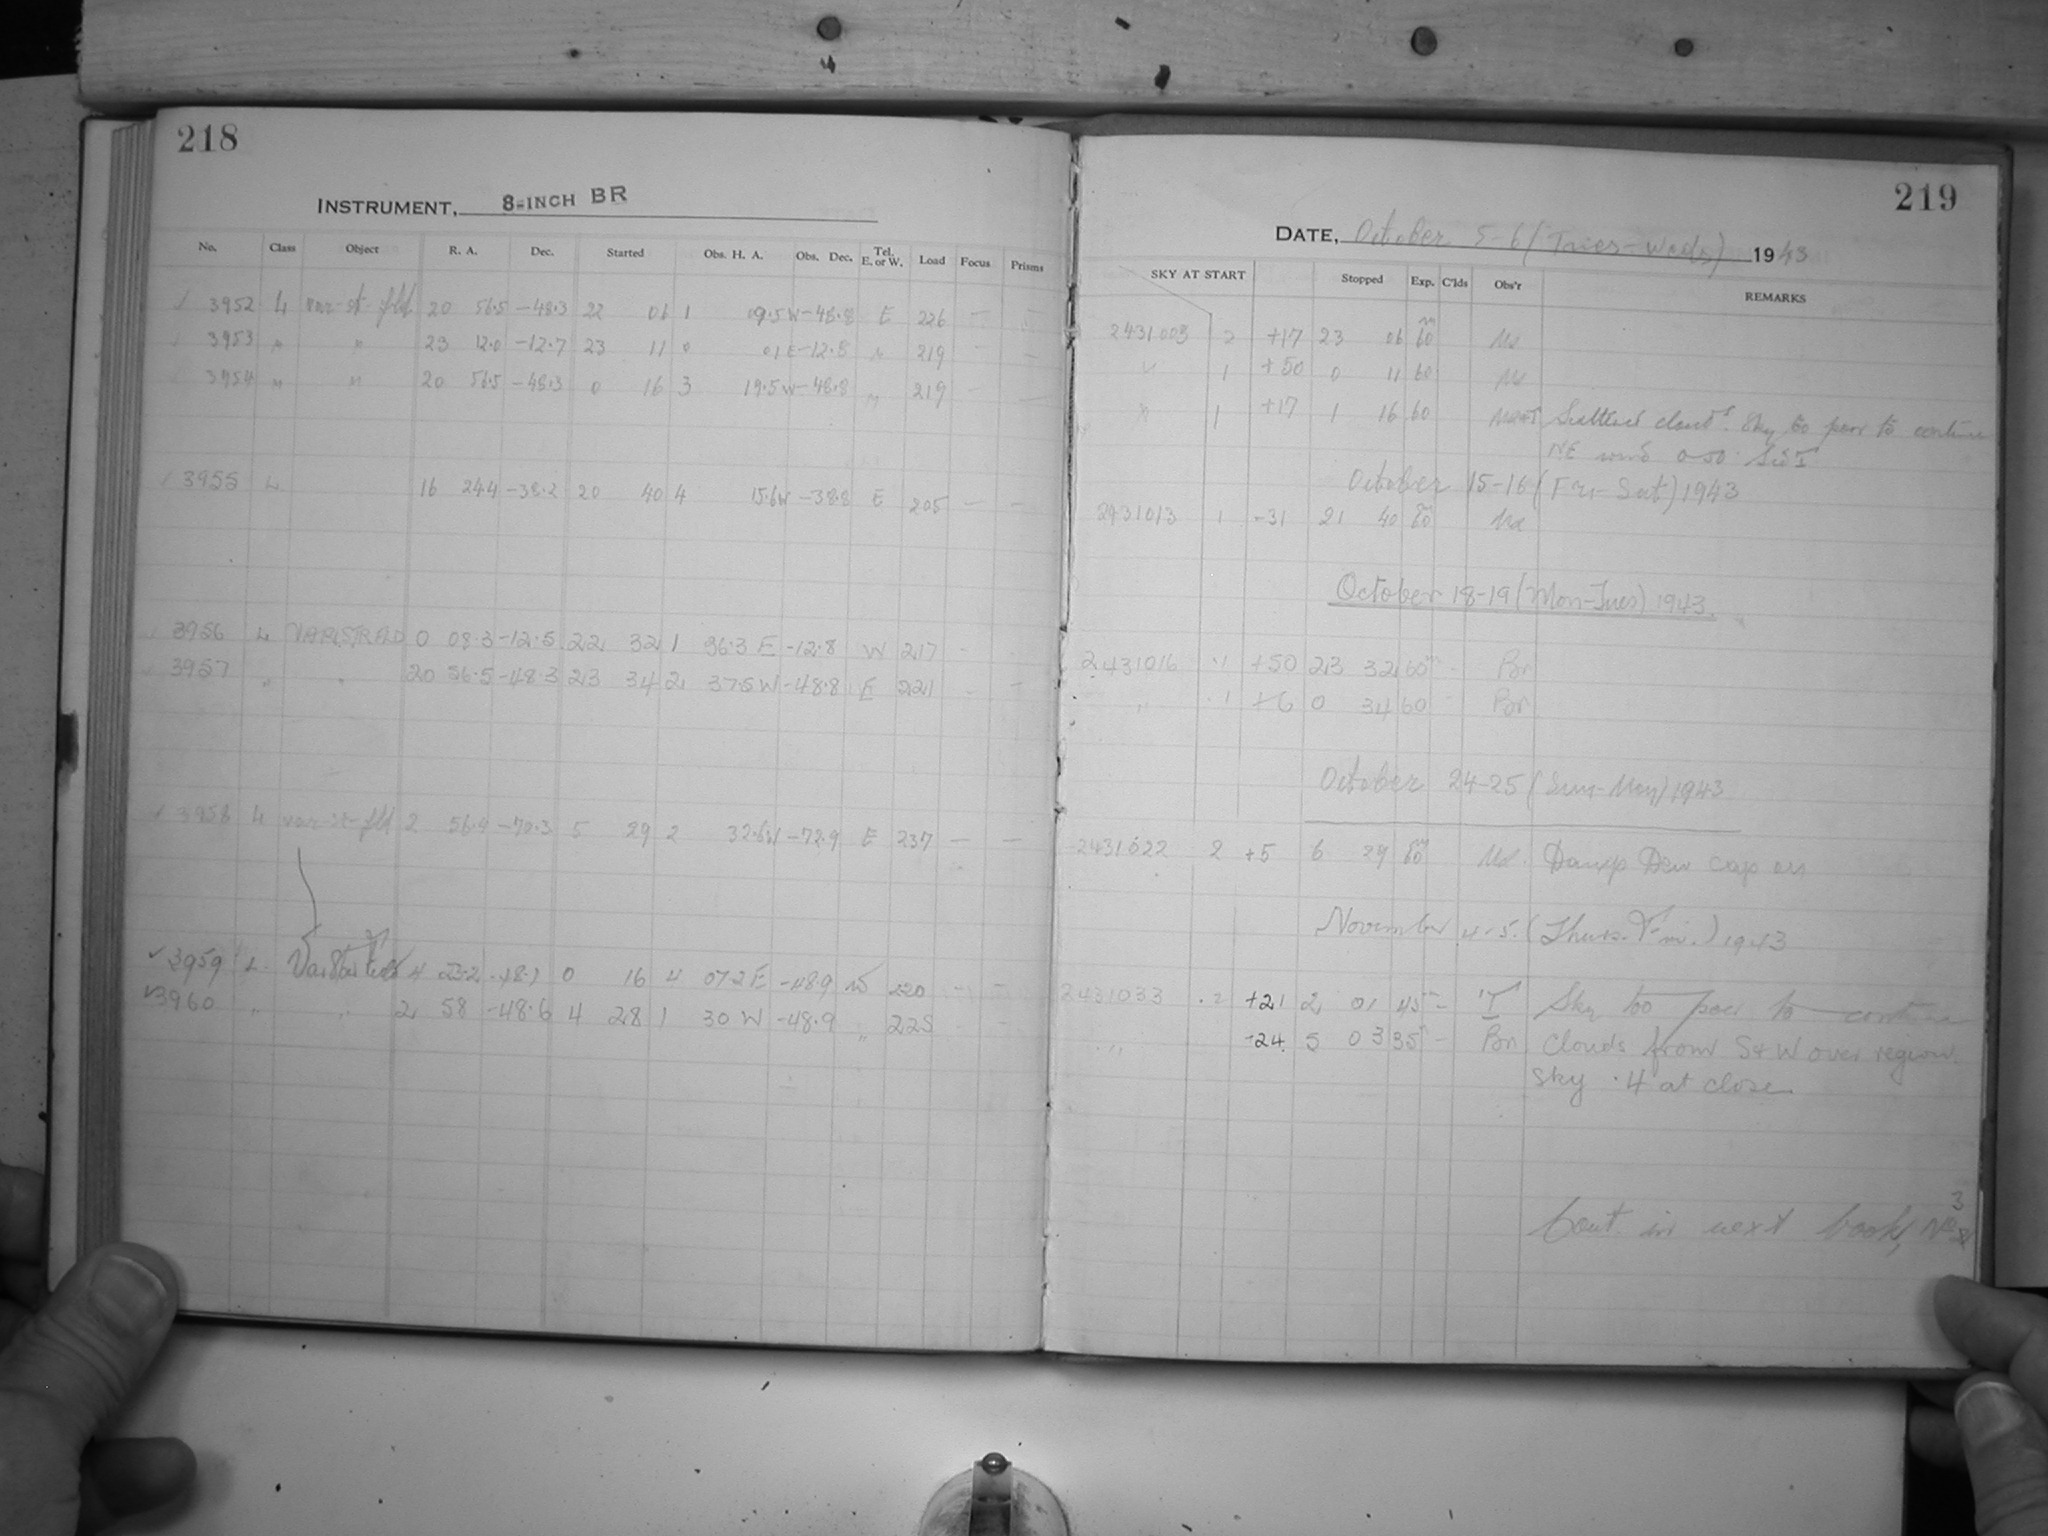 218
INSTRUMENT, 8-INCH BR
No. Class Object R. A. Dec. Started Obs. H. A. Obs. Dec. Tel. E. or W. Load Focus Prisms
3952 L var-st-fld 20 56.5 -48.3 22 06 1 09.5 W -48.8 E 226 - -
3953 " " 23 12.0 -12.7 23 11 0 01 E -12.8 " 219 - -
3954 " " 20 56.5 -48.3 0 16 3 19.5 W -48.8 " 219 - -
3955 L 16 24.4 -38.2 20 40 4 15.6 W -38.8 E 205 - -
3956 L VAR.ST.FLD 0 08.3 -12.5 22 32 1 36.3 E -12.8 W 217 -
3957 " " 20 56.5 -48.3 23 34 2 37.5 W -48.8 E 221 - -
3958 L var-st-fld 2 56.9 -72.3 5 29 2 32.6 W -72.9 E 237 - -
✓ 3959 L Var Star Field 4 23.2 -48.7 0 16 4 07.2 E -48.9 W 220 - -
✓ 3960 " " 2 58 -48.6 4 28 1 30 W -48.9 " 225 - -
219
DATE, October 5-6 (Tues-Weds) 1943
SKY AT START Stopped Exp. C'lds Obs'r REMARKS
2431003 2 +17 23 06 60m
" 1 +50 0 11 60
" 1 +17 1 16 60 Scattered clouds. Sky too poor to continue
NE wind
October 15-16 (Fri-Sat) 1943
2431013 1 -31 21 40 60m
October 18-19 (Mon-Tues) 1943.
2431016 .1 +50 23 32 60m - Bn
" .1 +6 0 34 60 - Bn
October 24-25 (Sun-Mon) 1943
2431022 2 +5 6 29 60m Damp Dew cap on
November 4-5. (Thurs.-Fri.) 1943
2431033 .2 +21 2 01 45m - T Sky too poor to continue
" -24 5 03 35m - Bn Clouds from S & W over region.
Sky .4 at close
Cont. in next book, No 3